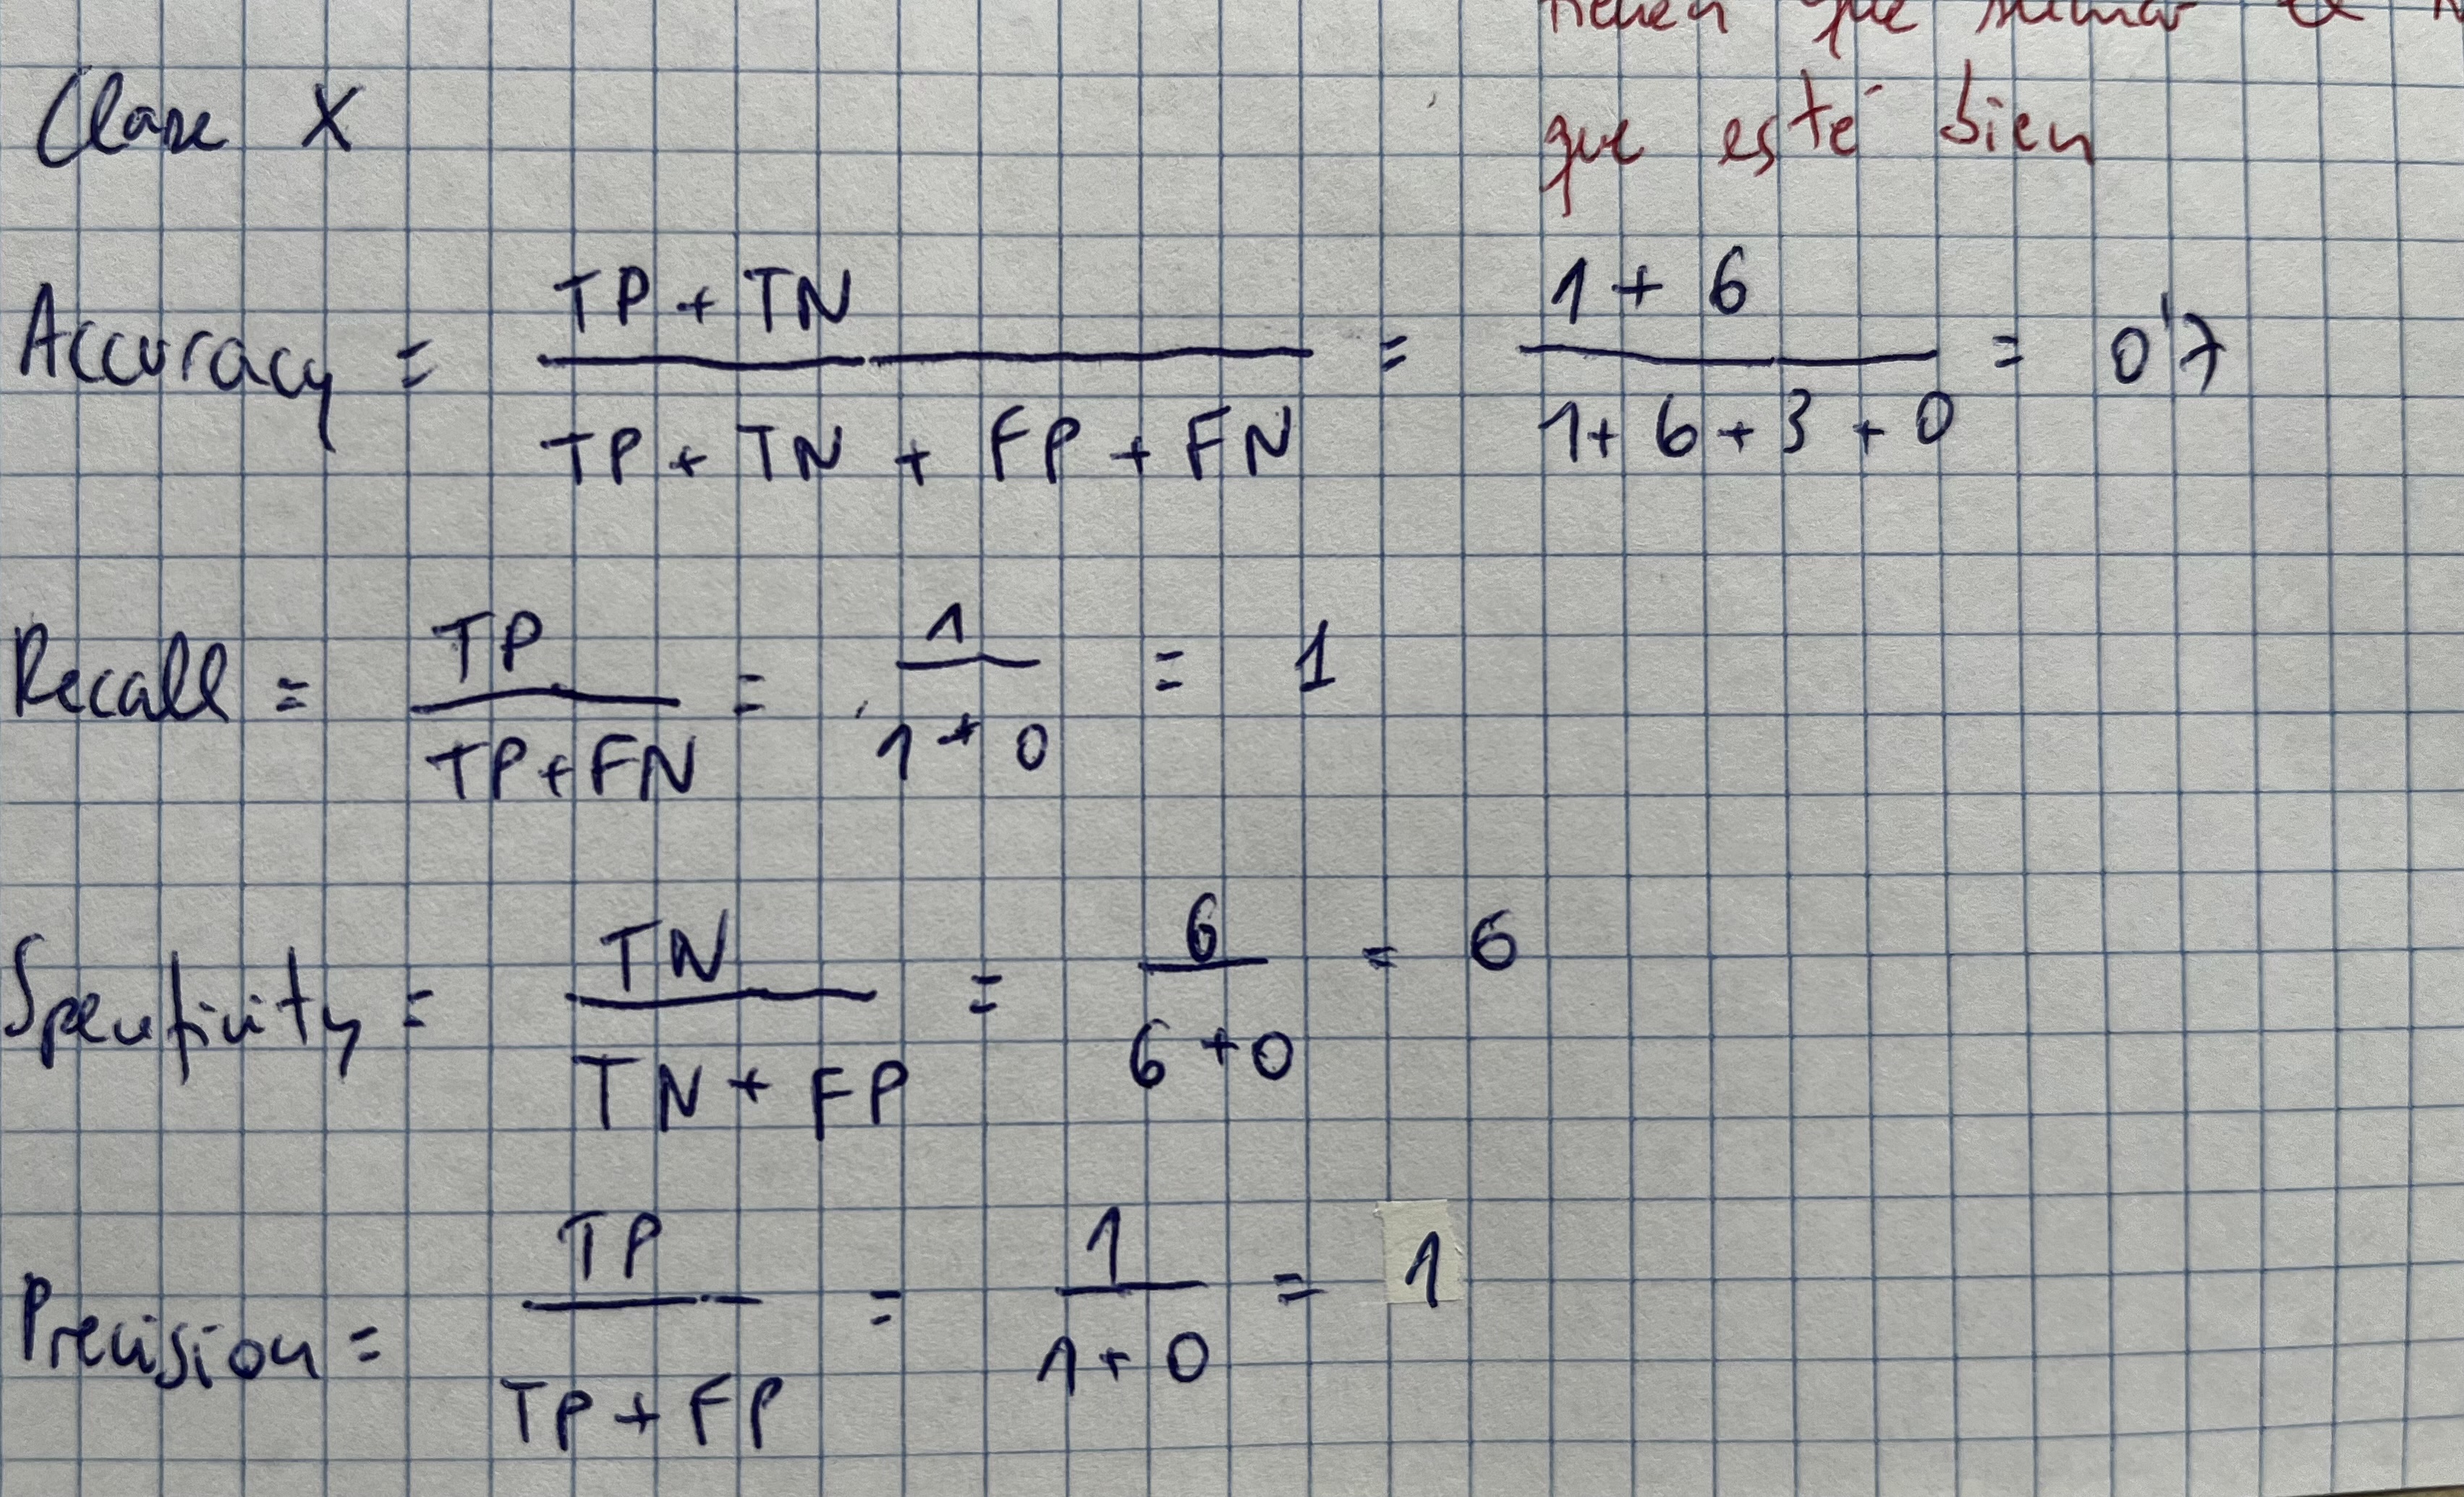 tienen que sumar el
que esté bien
Clase X
Accuracy = TP + TN / TP + TN + FP + FN = 1 + 6 / 1 + 6 + 3 + 0 = 0'7
Recall = TP / TP + FN = 1 / 1 + 0 = 1
Specificity = TN / TN + FP = 6 / 6 + 0 = 6
Precision = TP / TP + FP = 1 / 1 + 0 = 1